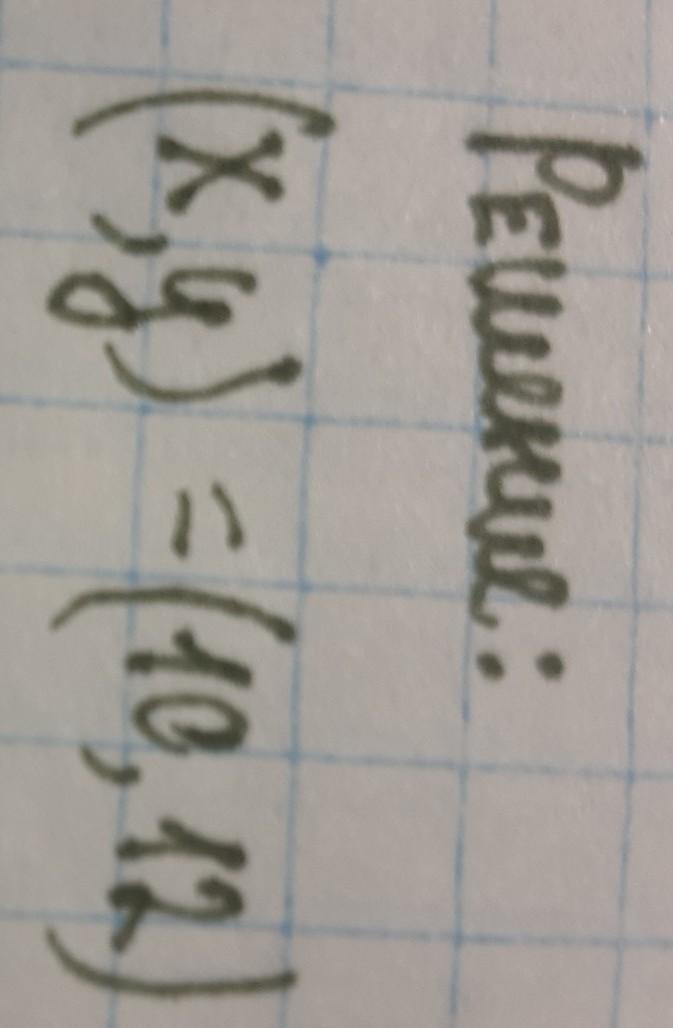 Решение:
(x,y) = (10, 12)